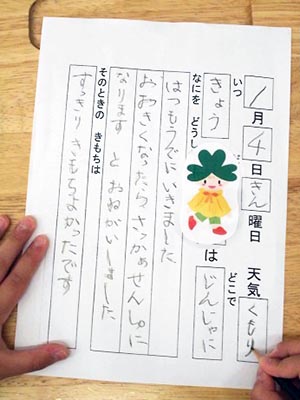 1月4日きん曜日 天気くもり
いつ どこで
きょう は じんじゃに
なにを どうし
はつもうでにいきました
おおきくなったらさっかぁせんしゅに
なります と おねがいしました
そのときの きもちは
すっきり きもちよかったです